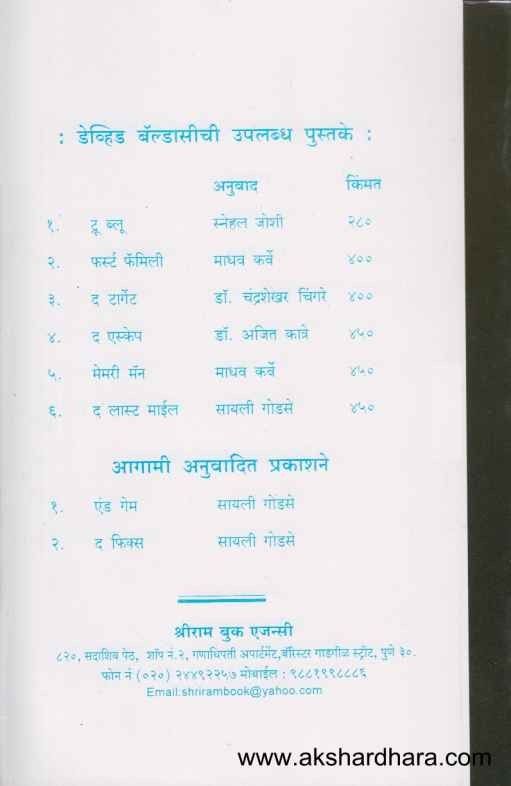 : डेव्हिड बॅल्डासीची उपलब्ध पुस्तके :
अनुवाद किंमत
१. ट्रू ब्लू स्नेहल जोशी २८०
२. फर्स्ट फॅमिली माधव कर्वे ४००
३. द टार्गेट डॉ. चंद्रशेखर चिंगरे ४००
४. द एस्केप डॉ. अजित कात्रे ४५०
५. मेमरी मॅन माधव कर्वे ४५०
६. द लास्ट माईल सायली गोडसे ४५०
आगामी अनुवादित प्रकाशने
१. एंड गेम सायली गोडसे
२. द फिक्स सायली गोडसे
श्रीराम बुक एजन्सी
८२०, सदाशिव पेठ, शॉप नं.२, गणाधिपती अपार्टमेंट,बॅरिस्टर गाडगीळ स्ट्रीट, पुणे ३०.
फोन नं (०२०) २४४९२२५७ मोबाईल : ९८८१९९८८८६
Email:shrirambook@yahoo.com
www.akshardhara.com